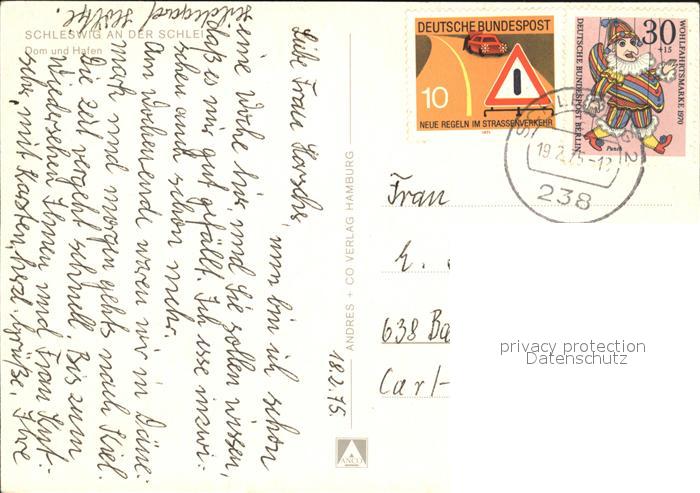 SCHLESWIG AN DER SCHLEI
Dom und Hafen
18.2.75.
Liebe Frau
nun bin ich schon
eine Woche hier, und Sie sollen wissen,
daß es mir gut gefällt. Ich esse inzwi-
schen auch schon mehr.
Am Wochenende waren wir in Däne-
mark und morgen gehts nach Kiel.
Die Zeit vergeht schnell. Bis zum
Wiedersehen Ihnen und Frau
herzl. Grüße, Ihre
ANDRES + CO VERLAG HAMBURG
ANCO
DEUTSCHE BUNDESPOST
10
NEUE REGELN IM STRASSENVERKEHR
1971
30
+15
WOHLFAHRTSMARKE 1970
DEUTSCHE BUNDESPOST BERLIN
Punch
19.2.75-12
238
Frau
E.
638 Ba
Carl-
privacy protection
Datenschutz